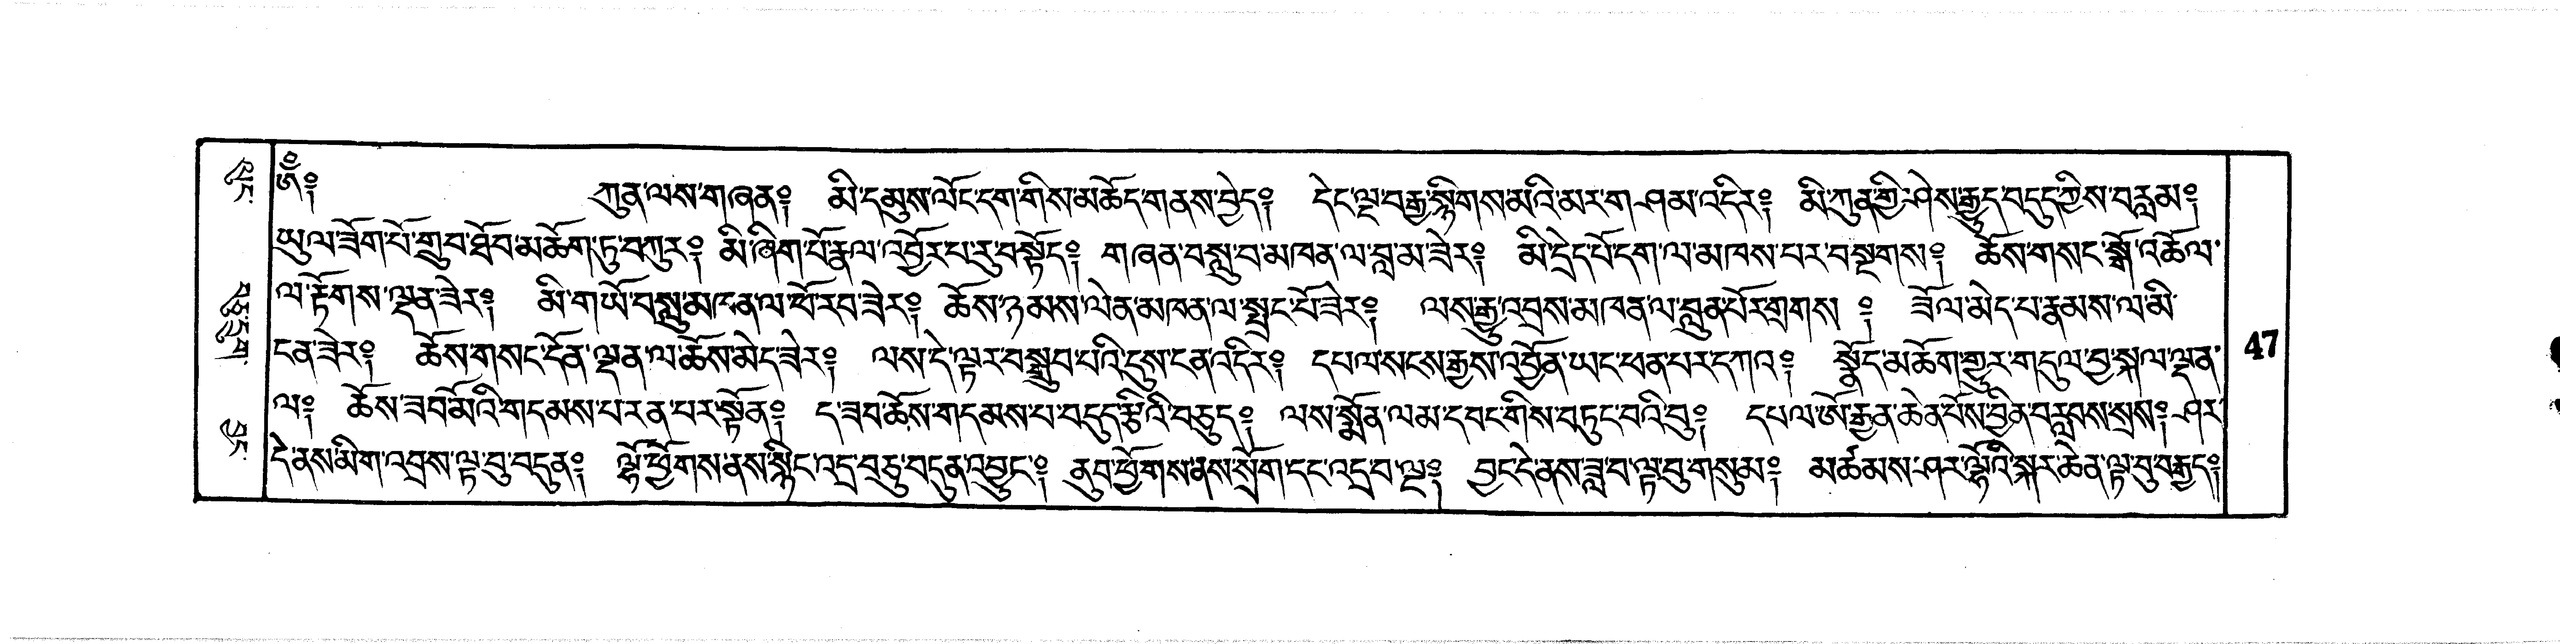 ཀུན་ལས་གཞན༔ མི་དམུས་ལོང་དག་གིས་མཆོད་གནས་བྱེད༔ དེང་ལྔ་བརྒྱ་སྙིགས་མའི་མར་ག་ཤམ་འདིར༔ མི་ཀུན་གྱི་ཤེས་རྒྱུད་བདུད་ཀྱིས་བརླམ༔
ཡུལ་ཟོག་པོ་གྲུབ་ཐོབ་མཆོག་ཏུ་བཀུར༔ མི་ཞིག་པོ་རྣལ་འབྱོར་པ་རུ་བསྟོད༔ གཞན་བསླུ་བ་མཁན་ལ་བླ་མ་ཟེར༔ མི་དྲེད་པོ་དག་ལ་མཁས་པར་བསྔགས༔ ཆོས་གསང་སྒོ་འཆོལ་
ལ་རྟོགས་ལྡན་ཟེར༔ མི་གཡོ་བསླུ་མཁན་ལ་ཕོ་རབ་ཟེར༔ ཆོས་ཉམས་ལེན་མཁན་ལ་སྤྲང་པོ་ཟེར༔ ལས་རྒྱུ་འབྲས་མཁན་ལ་བླུན་པོར་གྲགས ༔ ཟོལ་མེད་པ་རྣམས་ལ་མི་
ངན་ཟེར༔ ཆོས་གསང་དོན་ལྡན་ལ་ཆོས་མེད་ཟེར༔ ལས་དེ་ལྟར་བསྒྲུབ་པའི་དུས་ངན་འདིར༔ དཔལ་སངས་རྒྱས་འབྱོན་ཡང་ཕན་པར་དཀའ༔ སྣོད་མཆོག་གྱུར་གདུལ་བྱ་སྐལ་ལྡན་
ལ༔ ཆོས་ཟབ་མོའི་གདམས་པ་རན་པར་སྟོན༔ ད་ཟབ་ཆོས་གདམས་པ་བདུད་རྩིའི་བཅུད༔ ལས་སྨོན་ལམ་དབང་གིས་བཏུང་བའི་བུ༔ དཔལ་ཨོ་རྒྱན་ཆེན་པོས་བྱིན་བརླབས་སྲས༔ ཤར་
དེ་ནས་མིག་འབྲས་ལྟ་བུ་བདུན༔ ལྷོ་ཕྱོགས་ནས་སྙིང་འདྲ་བཅུ་བདུན་འབྱུང་༔ ནུབ་ཕྱོགས་ནས་སྲོག་དང་འདྲ་བ་ལྔ༔ བྱང་དེ་ནས་ཟླ་བ་ལྟ་བུ་གསུམ༔ མཚམས་ཤར་ལྷོའི་སྐར་ཆེན་ལྟ་བུ་བརྒྱད༔
47